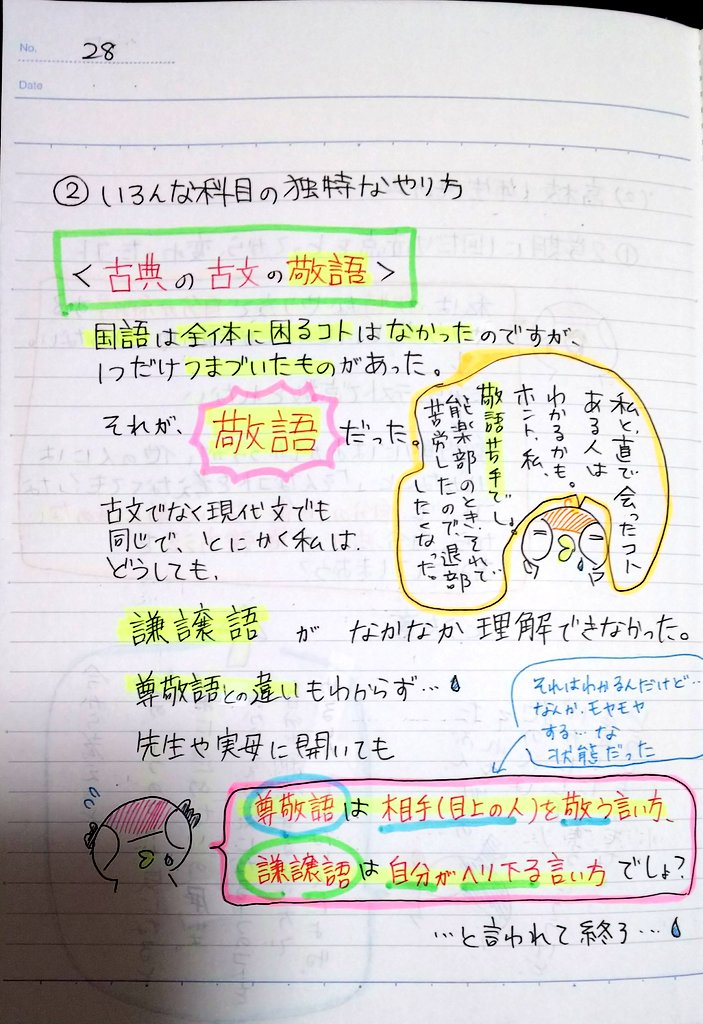 No. 28
Date
② いろんな科目の独特なやり方
<古典の古文の敬語>
国語は全体に困るコトはなかったのですが、
1つだけつまづいたものがあった。
それが、敬語だった。
私と、直で会ったコト
ある人は
わかるかも。
ホント、私、
敬語苦手でし。
能楽部のとき、それで…
苦労したので、退部
したくなった。
古文でなく現代文でも
同じで、とにかく私は、
どうしても、
謙譲語がなかなか理解できなかった。
尊敬語との違いもわからず…
それはわかるんだけど…
なんか、モヤモヤ
する…な
状態だった
先生や実母に聞いても
尊敬語は相手(目上の人)を敬う言い方、
謙譲語は自分がヘリ下る言い方でしょ?
…と言われて終了…